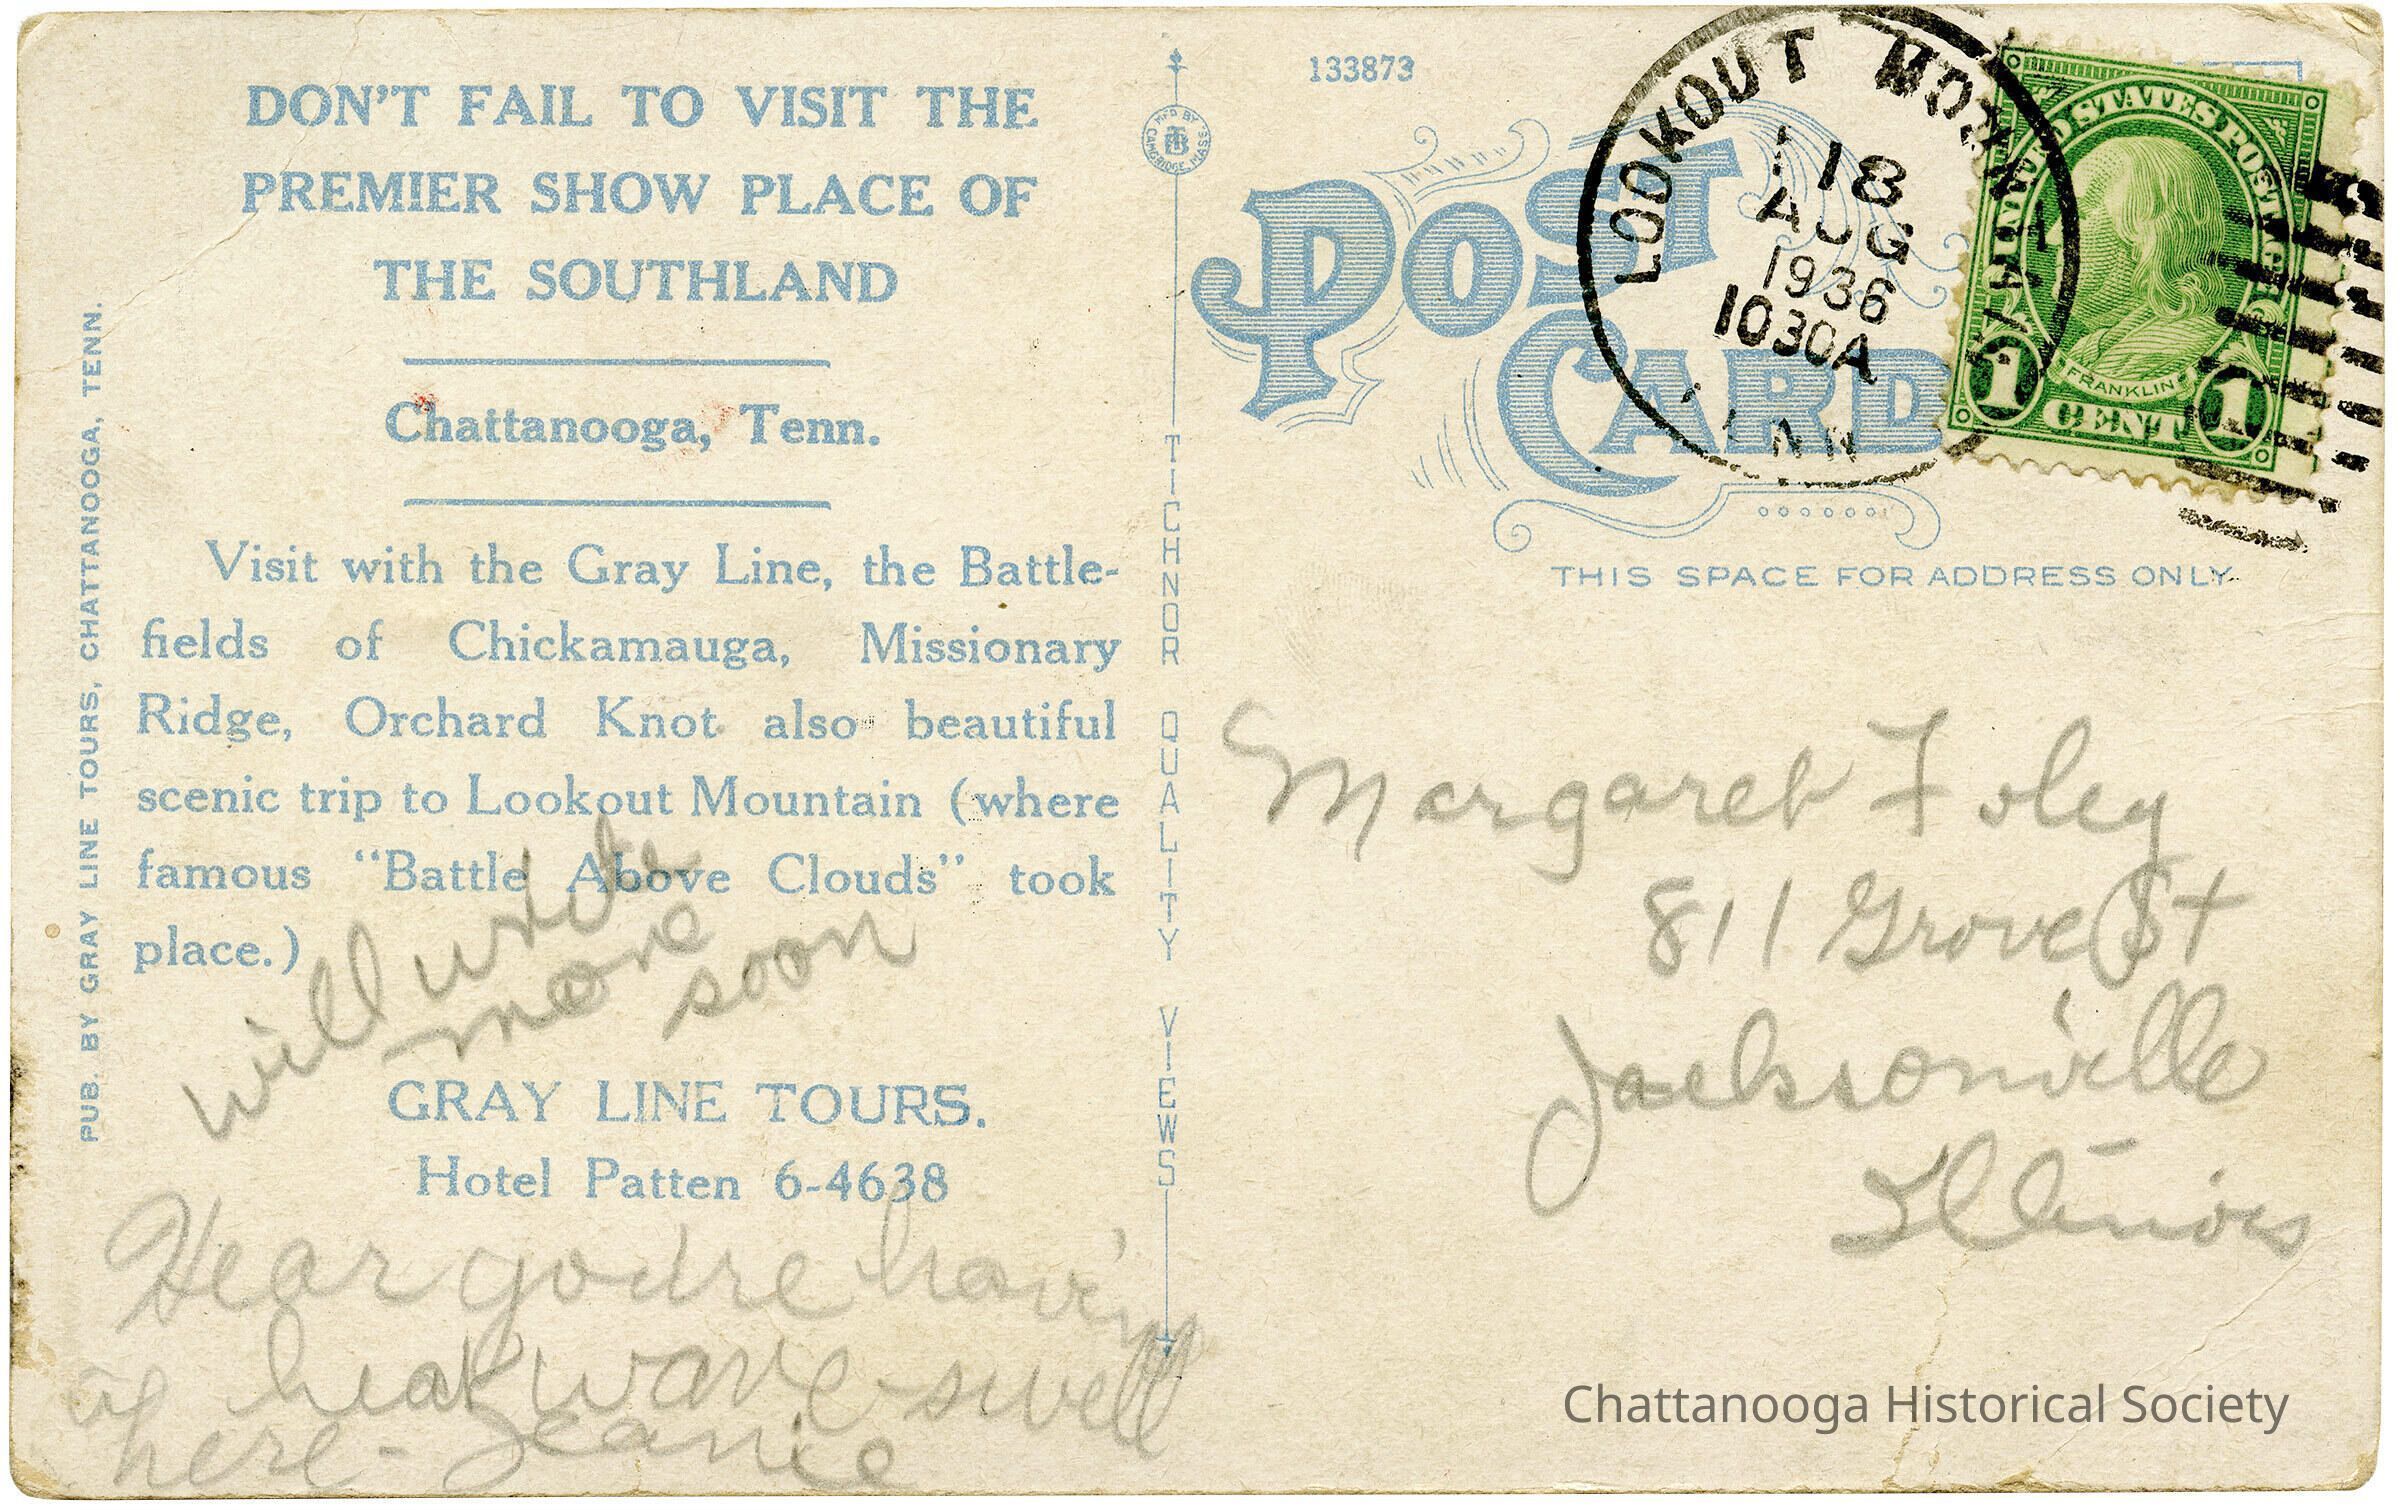 DON'T FAIL TO VISIT THE
PREMIER SHOW PLACE OF
THE SOUTHLAND
Chattanooga, Tenn.
Visit with the Gray Line, the Battle-
fields of Chickamauga, Missionary
Ridge, Orchard Knot also beautiful
scenic trip to Lookout Mountain (where
famous "Battle Above Clouds" took
place.)
will write
more
soon
GRAY LINE TOURS.
Hotel Patten 6-4638
Hear you're havin'
a heat wave - swell
here - Jeanie
PUB. BY GRAY LINE TOURS, CHATTANOOGA, TENN.
MF'D BY
TB
CAMBRIDGE, MASS.
TICHNOR QUALITY VIEWS
133873
POST
CARD
LOOKOUT MOUNTAIN
18
AUG
1936
1030A
TENN
UNITED STATES POSTAGE
FRANKLIN
1 CENT 1
THIS SPACE FOR ADDRESS ONLY
Margaret Foley
811 Grove St
Jacksonville
Illinois
Chattanooga Historical Society